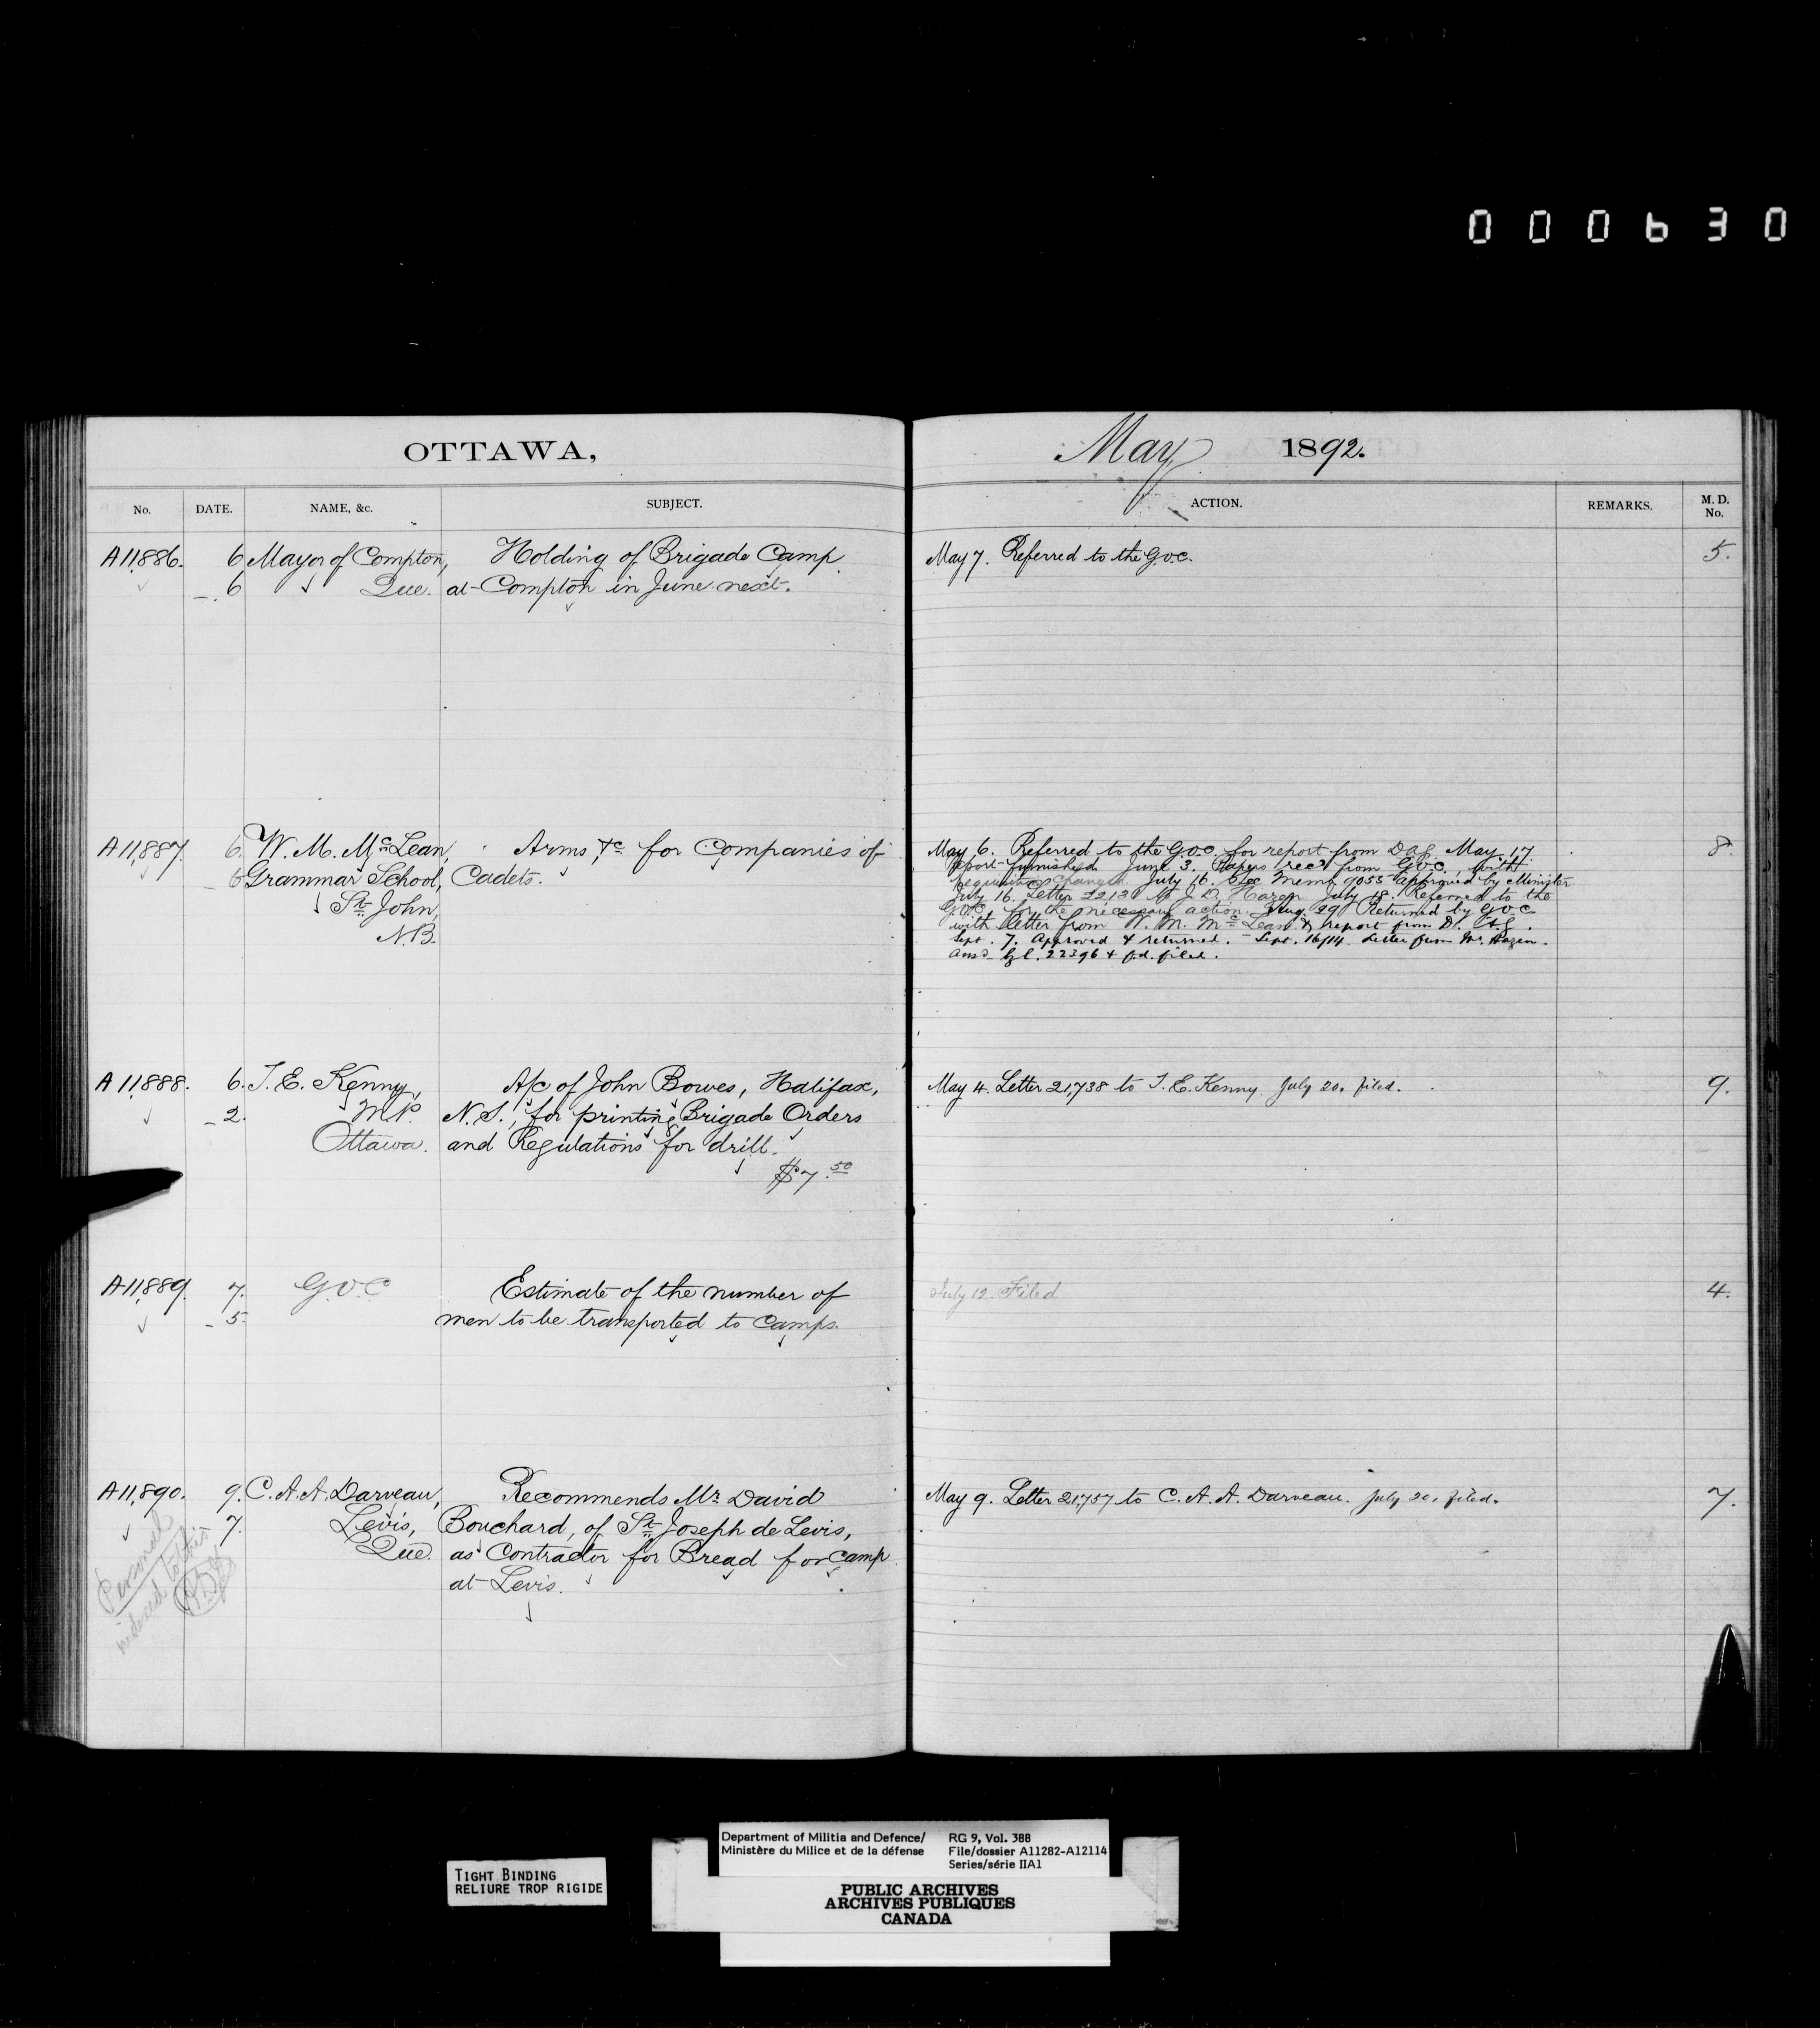 000630
OTTAWA,
May 1892.
No. DATE. NAME, &c. SUBJECT. ACTION. REMARKS. M. D. No.
A11,886. 6 Mayor of Compton, Holding of Brigade Camp May 7. Referred to the G.O.C. 5.
6 Que. at Compton in June next.
A11,887. 6. W. M. McLean, Arms &c for Companies of
6 Grammar School, Cadets.
St. John,
N.B.
May 6. Referred to the G.O.C. for report from DAG May 17 8.
report furnished June 3. Papers rec'd from G.O.C. with
July 16. See Memo 9055 approved by Minister
July 16. Letter 22131 to J. D. Hazen July 18. Referred to the
G.O.C. for the necessary action. Aug. 29 Returned by G.O.C.
with letter from W. M. McLean & report from D.A.G.
Sept. 7. Approved & returned. - Sept. 16/14. Letter from Mr. Hazen.
Ansd by l. 22396 & p.d. filed.
A11,888. 6. T. E. Kenny, A/c of John Bowes, Halifax, May 4. Letter 21,738 to T. E. Kenny. July 20. filed. 9.
2. M.P. N.S., for printing Brigade Orders
Ottawa. and Regulations for drill.
$7.50
A11,889. 7. G.O.C Estimate of the number of July 12. Filed 4.
5. men to be transported to Camps.
A11,890. 9. C. A. A. Darveau, Recommends Mr. David May 9. Letter 21,757 to C. A. A. Darveau. July 20, filed. 7.
7. Levis, Bouchard, of St. Joseph de Levis,
Que. as Contractor for Bread for Camp
at Levis.
Personal
Department of Militia and Defence/
Ministère du Milice et de la défense
RG 9, Vol. 388
File/dossier A11282-A12114
Series/série IIA1
TIGHT BINDING
RELIURE TROP RIGIDE
PUBLIC ARCHIVES
ARCHIVES PUBLIQUES
CANADA